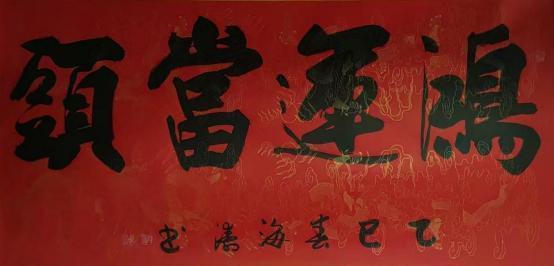 鴻運當頭
乙巳春海濤书